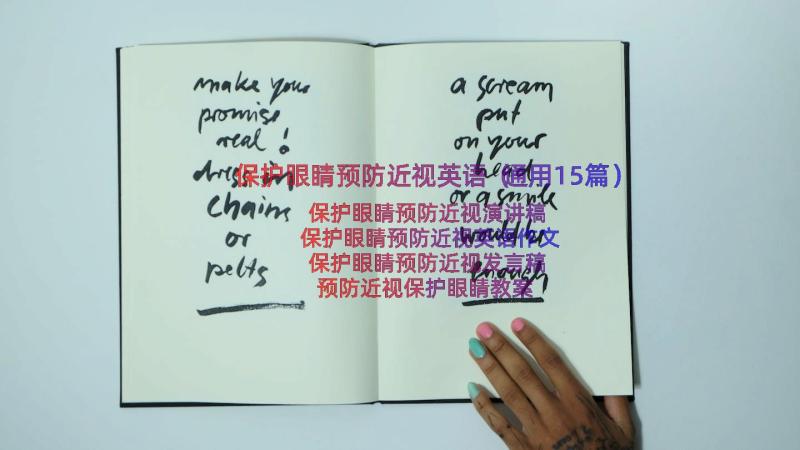 make your
promise
real!
dress in
chains
or
pelts
a scream
put
on your
head
or a smile
would be
enough
保护眼睛预防近视英语（通用15篇）
保护眼睛预防近视演讲稿
保护眼睛预防近视英语作文
保护眼睛预防近视发言稿
预防近视保护眼睛教案